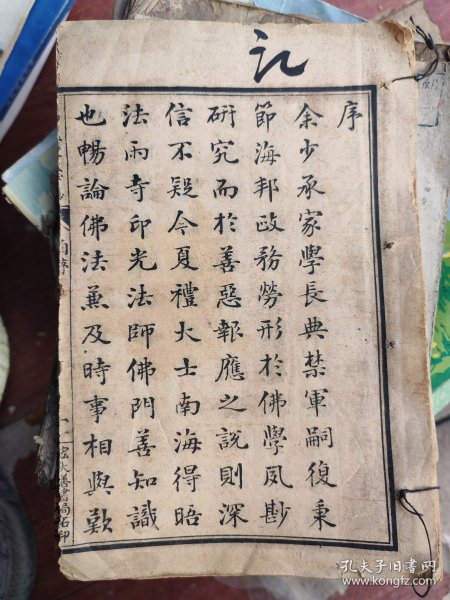 記
序
余少承家學長典禁軍嗣復秉
節海邦政務勞形於佛學夙尠
研究而於善惡報應之說則深
信不疑今夏禮大士南海得晤
法雨寺印光法師佛門善知識
也暢論佛法兼及時事相與歎
宏大善書局石印
孔夫子旧书网
www.kongfz.com